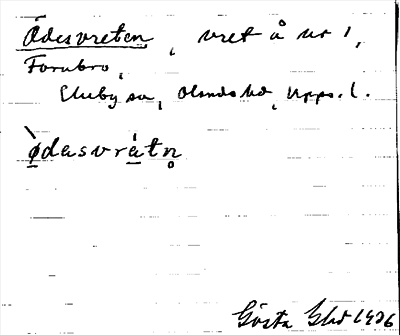 Ödesvreten, vret å nr 1,
Fornbro,
Ekeby sn, Olands hd, Upps. l.
ø̀dɛsvrätn̥
Gösta Ehd 1936